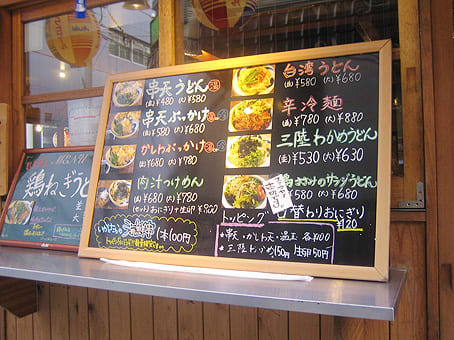 串天うどん 温
(並)¥480 (大)¥580
串天ぶっかけ
(並)¥580 (大)¥680
かしわぶっかけ
(並)¥680 (大)¥780
肉汁つけめん
(並)¥680 (大)¥780
1本100円
台湾うどん
(並)¥580 (大)¥680
辛冷麺
(並)¥780 (大)¥880
三陸わかめうどん
(並)¥530 (大)¥630
ささみのサラダうどん
(並)¥580 (大)¥680
日替わりおにぎり
¥120
トッピング
・串天・かしわ天・温玉 各¥100
・三陸わかめ150円 生卵50円
MENU
鶏ねぎうどん
並
大